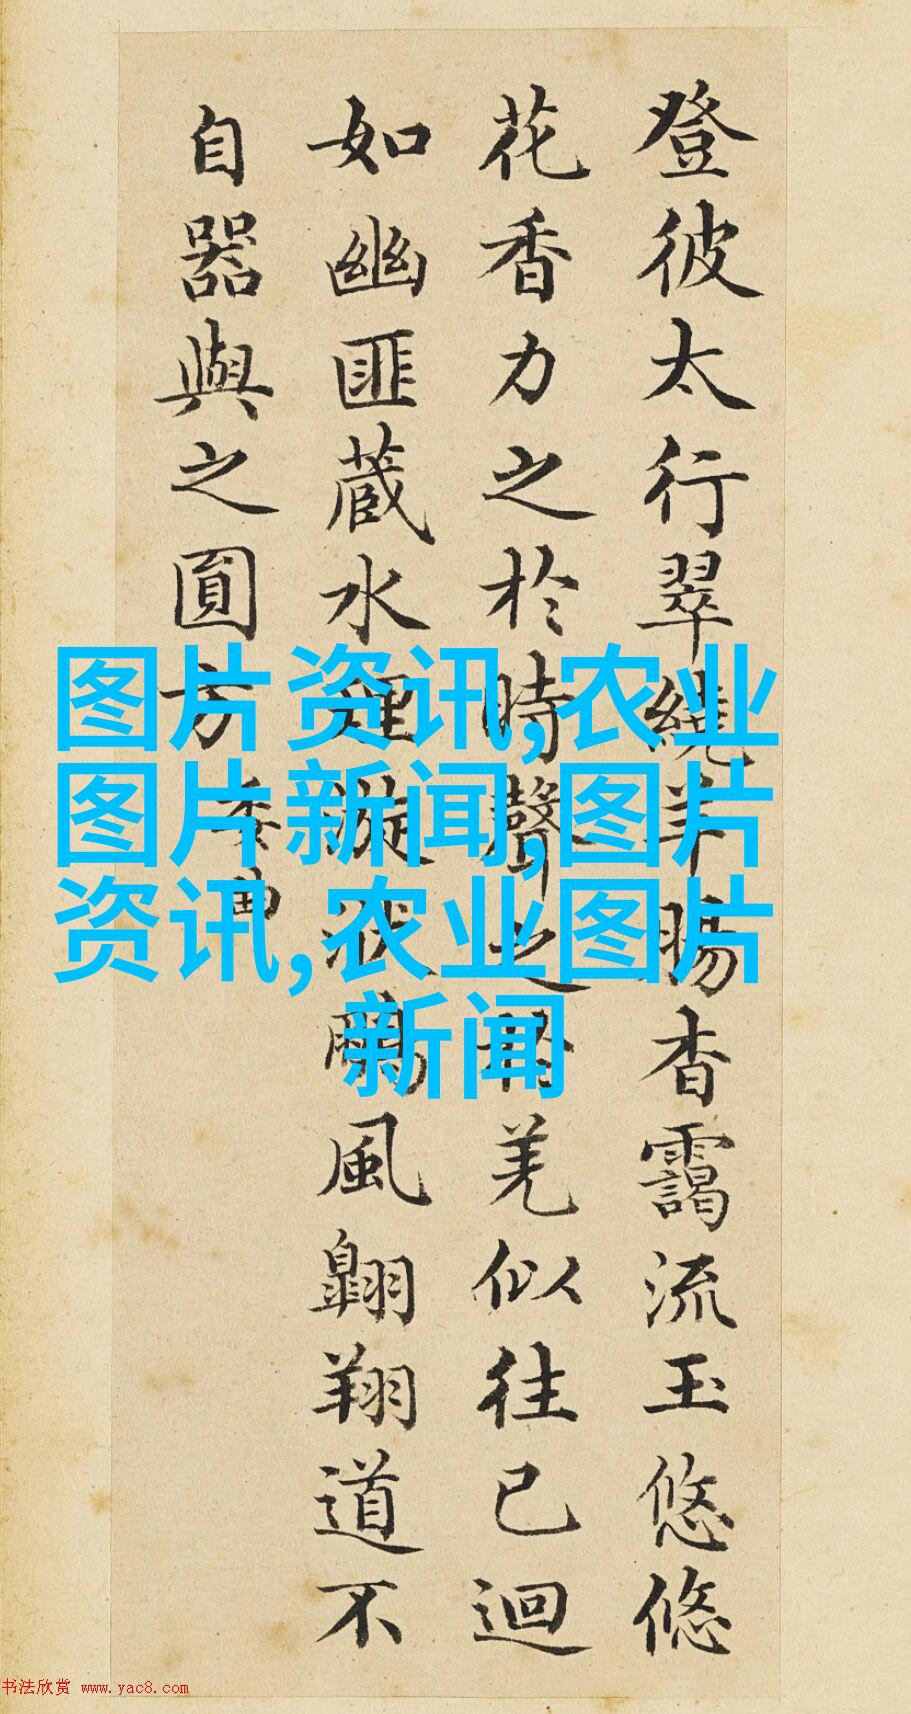 登彼太行翠繞羊腸杳靄流玉悠悠
花香力之於時聲之於羌似往已迴
如幽匪蔵水理漩洑鵬風翺翔道不
自器與之圓方 委曲
图片资讯,农业
图片新闻,图片
资讯,农业图片
新闻
书法欣赏 www.yac8.com